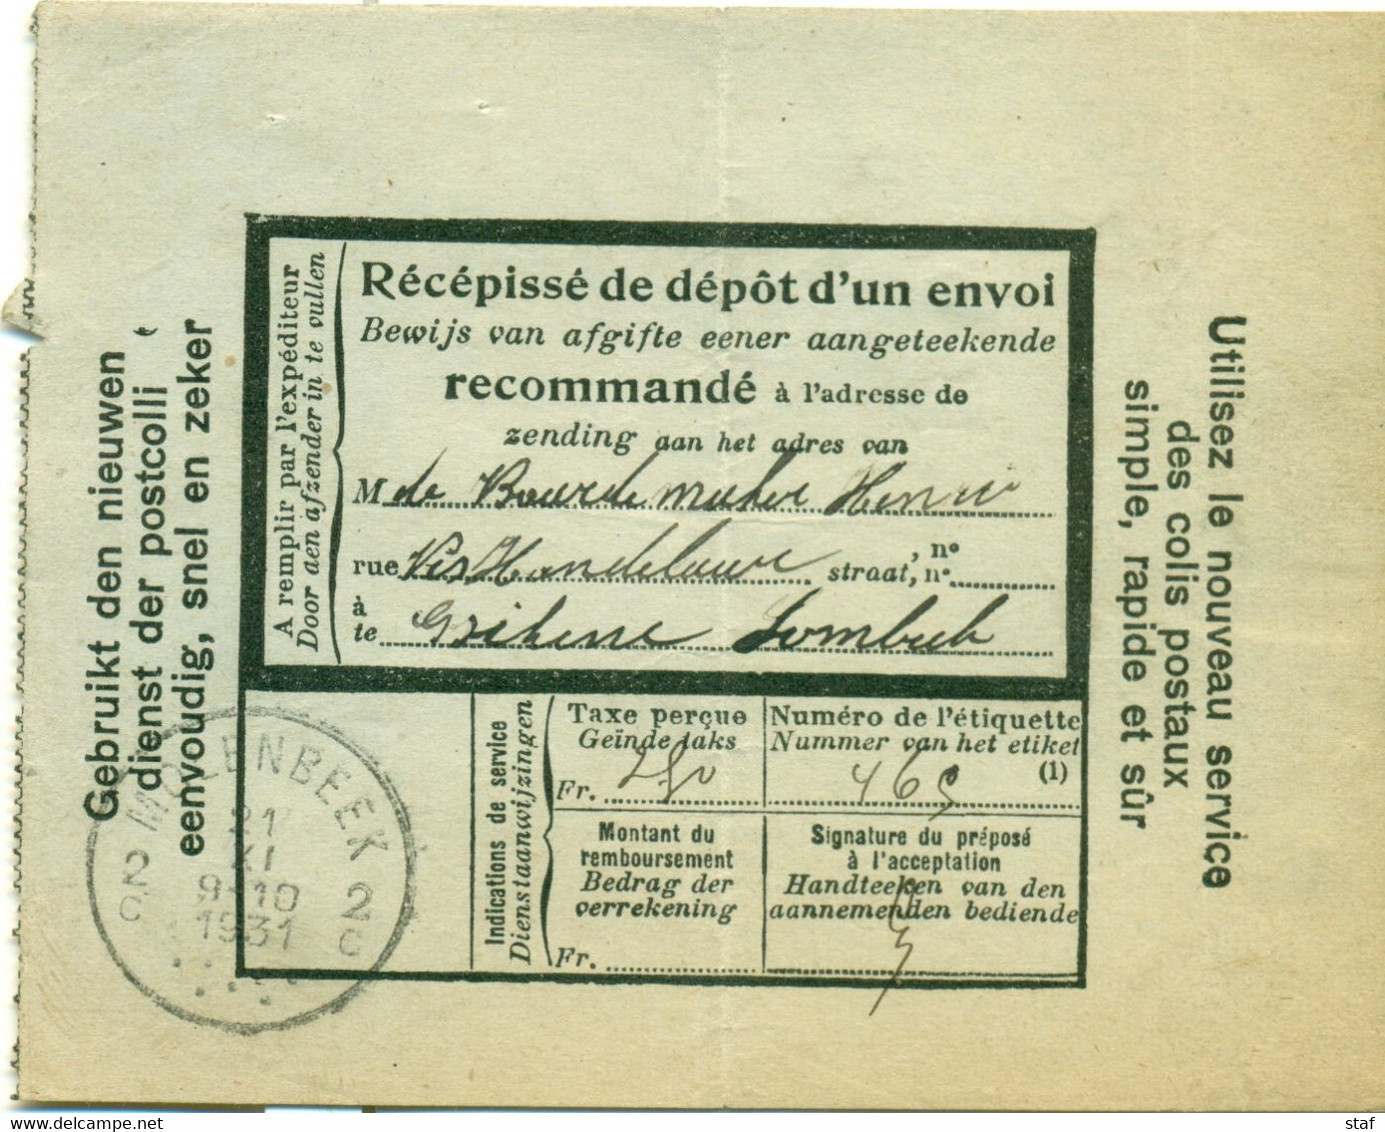 Gebruikt den nieuwen
dienst der postcolli
eenvoudig, snel en zeker
A remplir par l'expéditeur
Door den afzender in te vullen
Récépissé de dépôt d'un envoi
Bewijs van afgifte eener aangeteekende
recommandé à l'adresse de
zending aan het adres van
M de Henri
rue straat, n°
n°
à
te Lombeek
Indications de service
Dienstaanwijzingen
Taxe perçue
Geïnde taks
Fr.
Numéro de l'étiquette
Nummer van het etiket
(1)
465
Montant du
remboursement
Bedrag der
verrekening
Fr.
Signature du préposé
à l'acceptation
Handteeken van den
aannemenden bediende
MOLENBEEK
21
XI
9-10
1931
2 2
C C
Utilisez le nouveau service
des colis postaux
simple, rapide et sûr
www.delcampe.net
staf